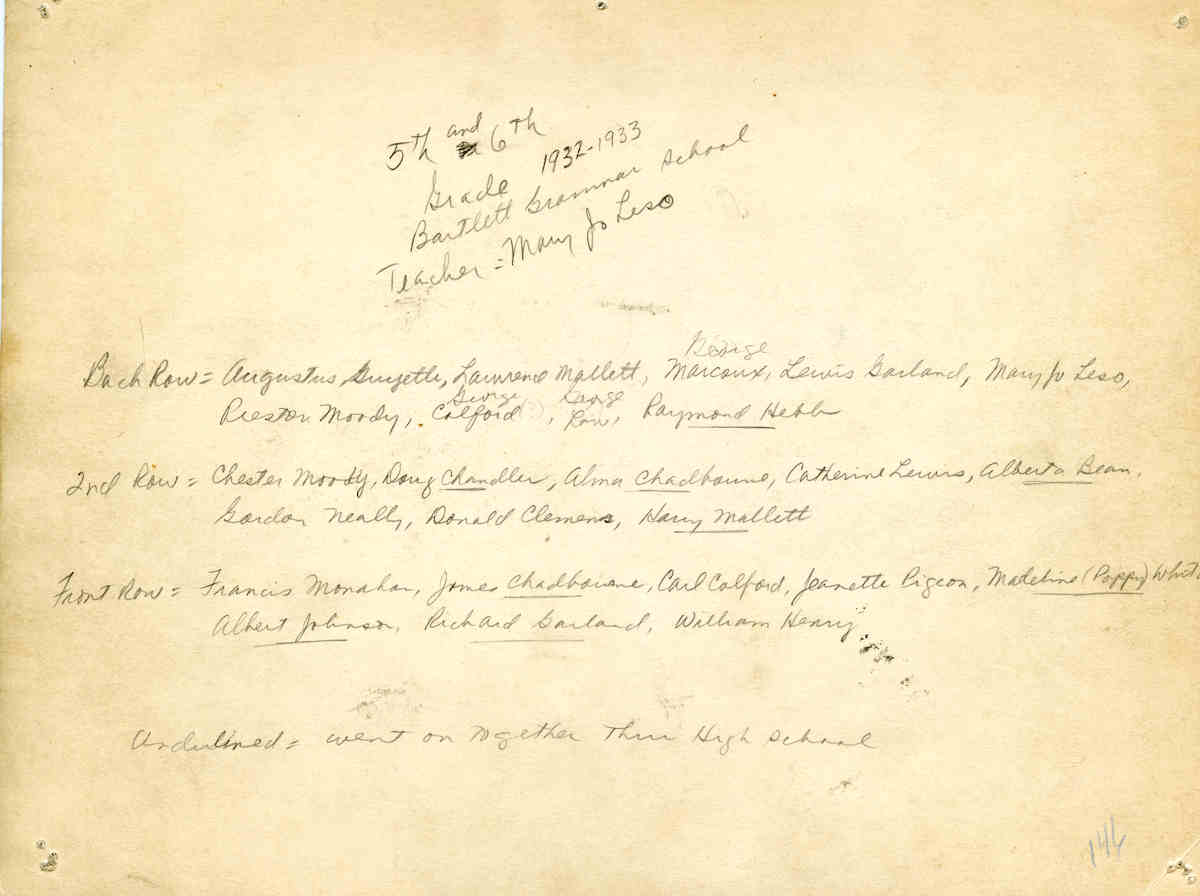 5th and 6th
Grade 1932-1933
Bartlett Grammar School
Teacher = Mary Jo Leso
George
Back Row = Augustus Guyette, Lawrence Mallett, Marcoux, Lewis Garland, Mary Jo Leso,
George George
Preston Moody, Colford, Row, Raymond Hebb
2nd Row = Chester Moody, Doug Chandler, Alma Chadbourne, Catherine Lewis, Alberta Bean,
Gordon Neally, Donald Clemens, Harry Mallett
Front Row = Francis Monahan, James Chadbourne, Carl Colford, Jeanette Pigeon, Madeline (Poppy) Whit
Albert Johnson, Richard Garland, William Henry
Underlined = went on together thru High School
144